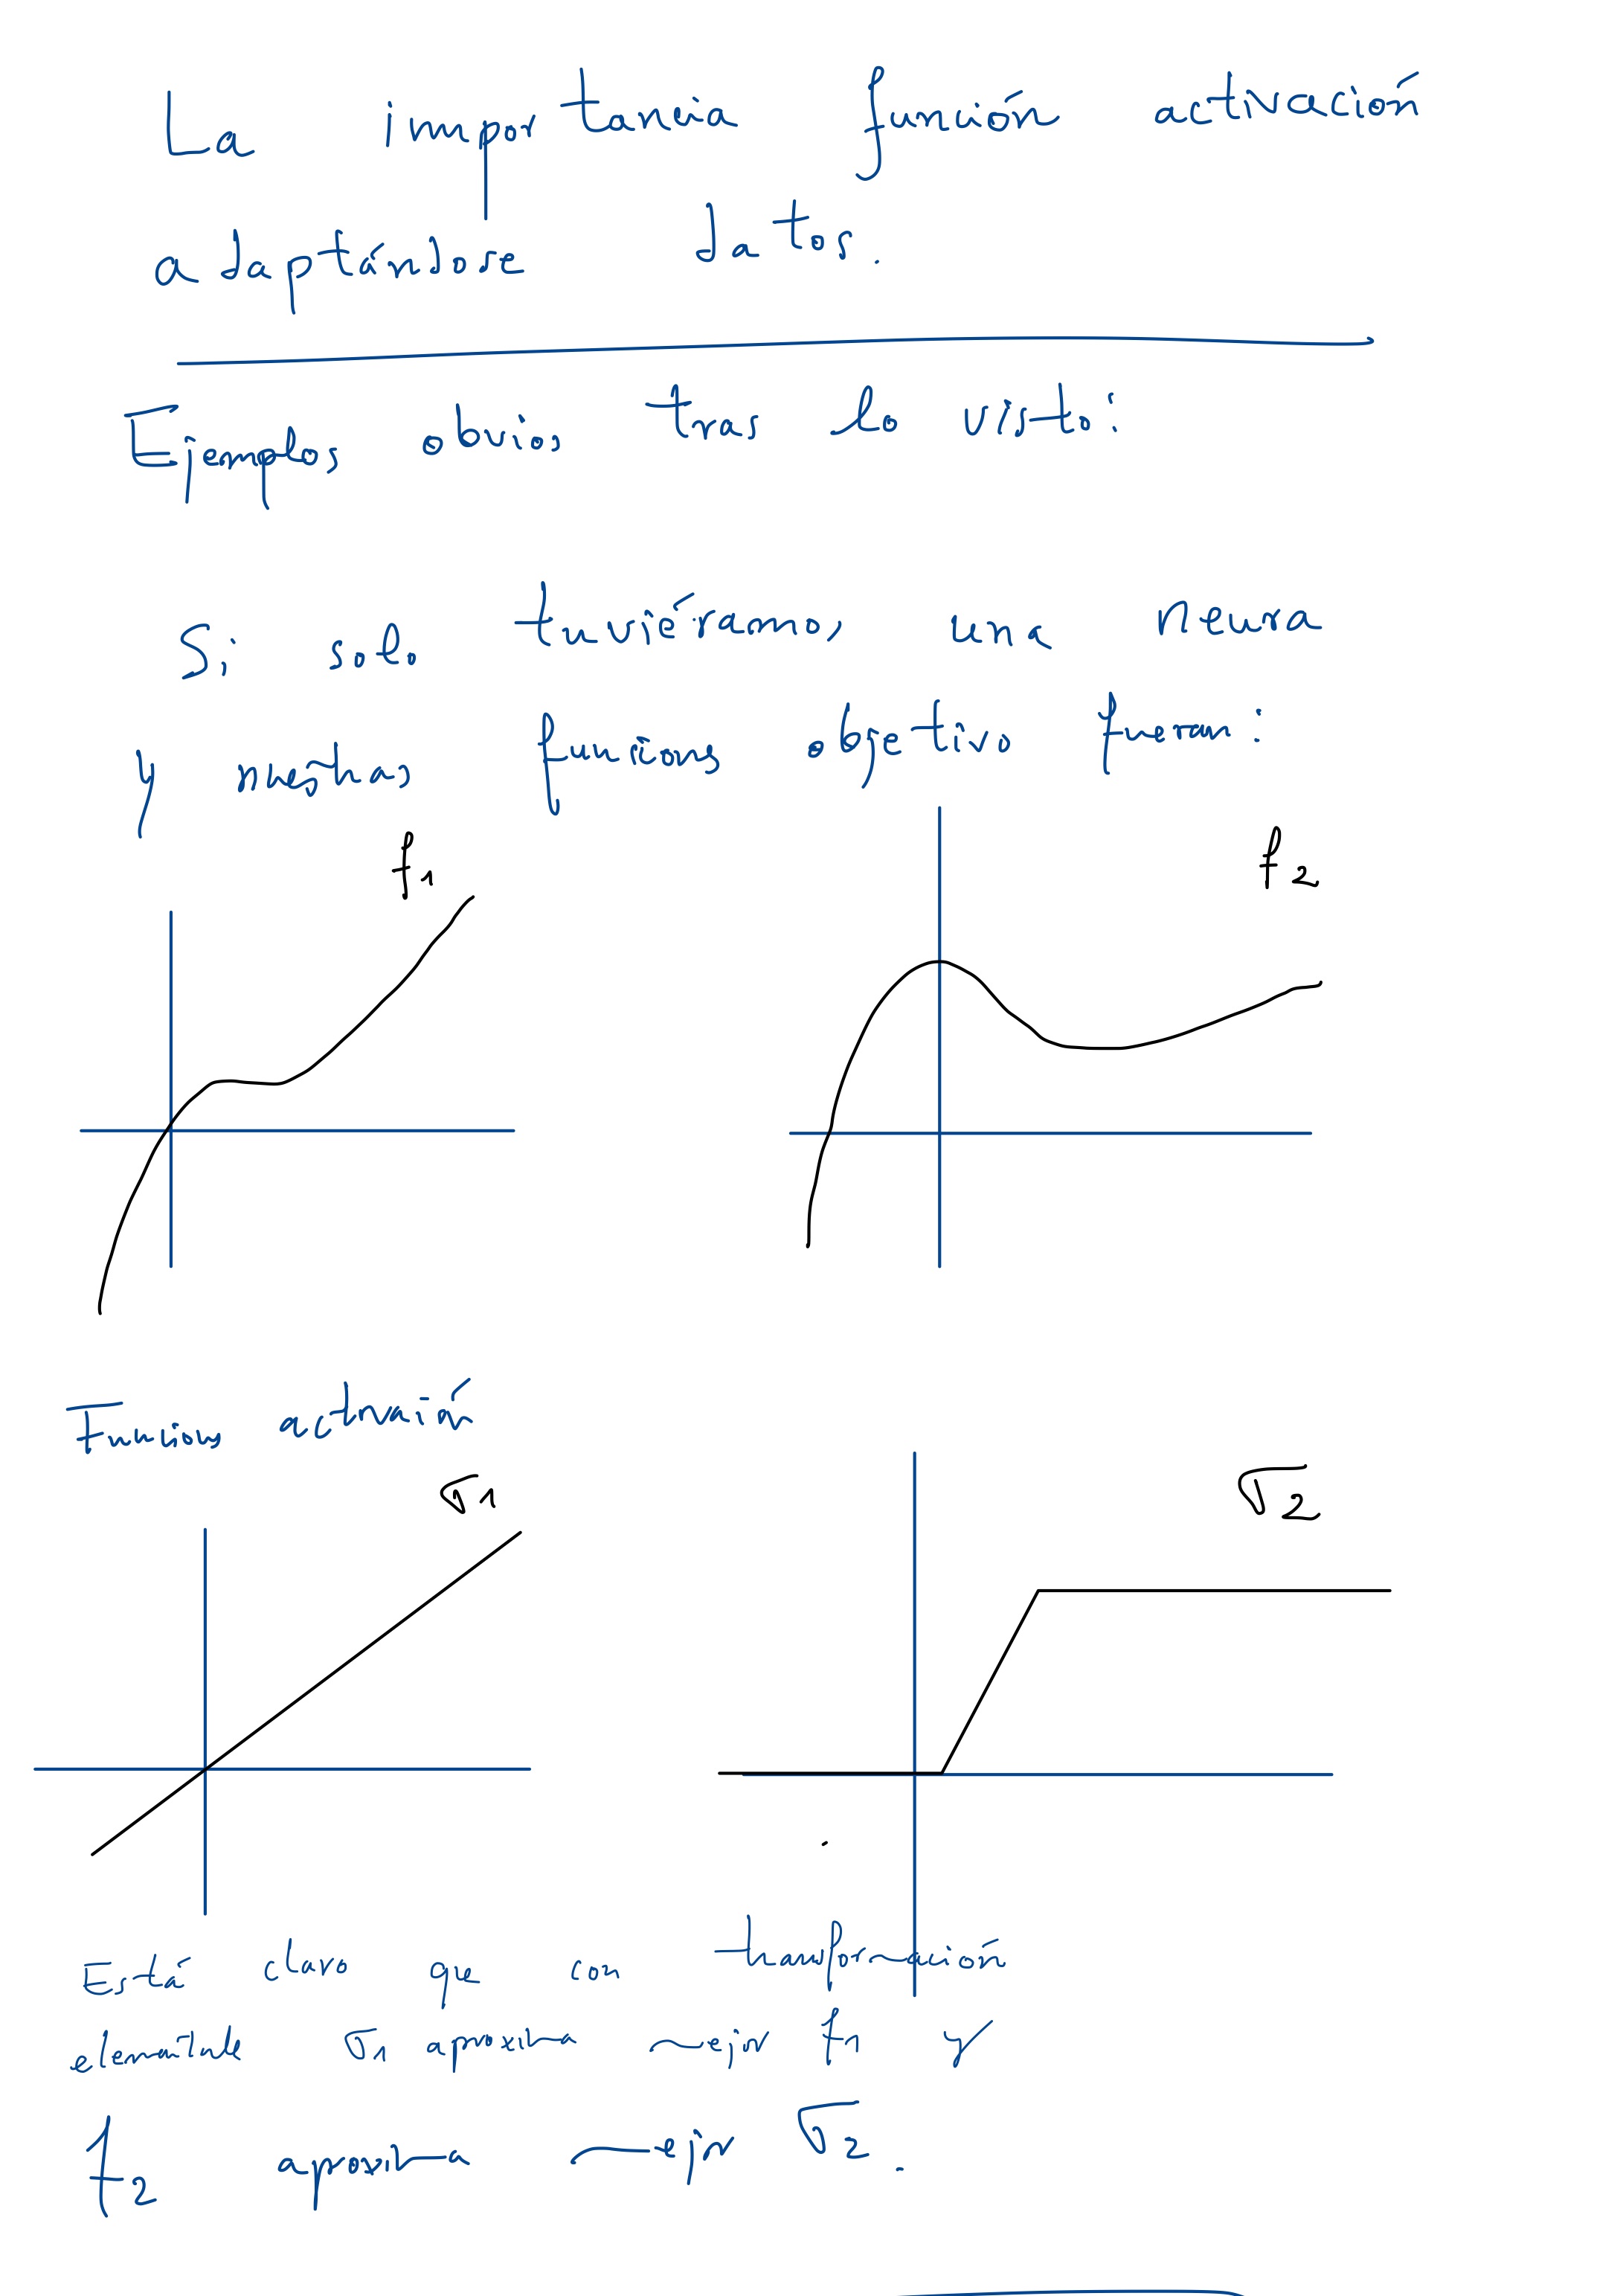 La importancia función activación
adaptándose datos.
Ejemplos obvios tras lo visto:
Si solo tuviéramos una neura
y nuestras funciones objetivo fueran:
f1
f2
Funciones activación
σ1
σ2
Está claro que con transformación
σ1 aproxima mejor f1 y
f2 aproxima mejor σ2.